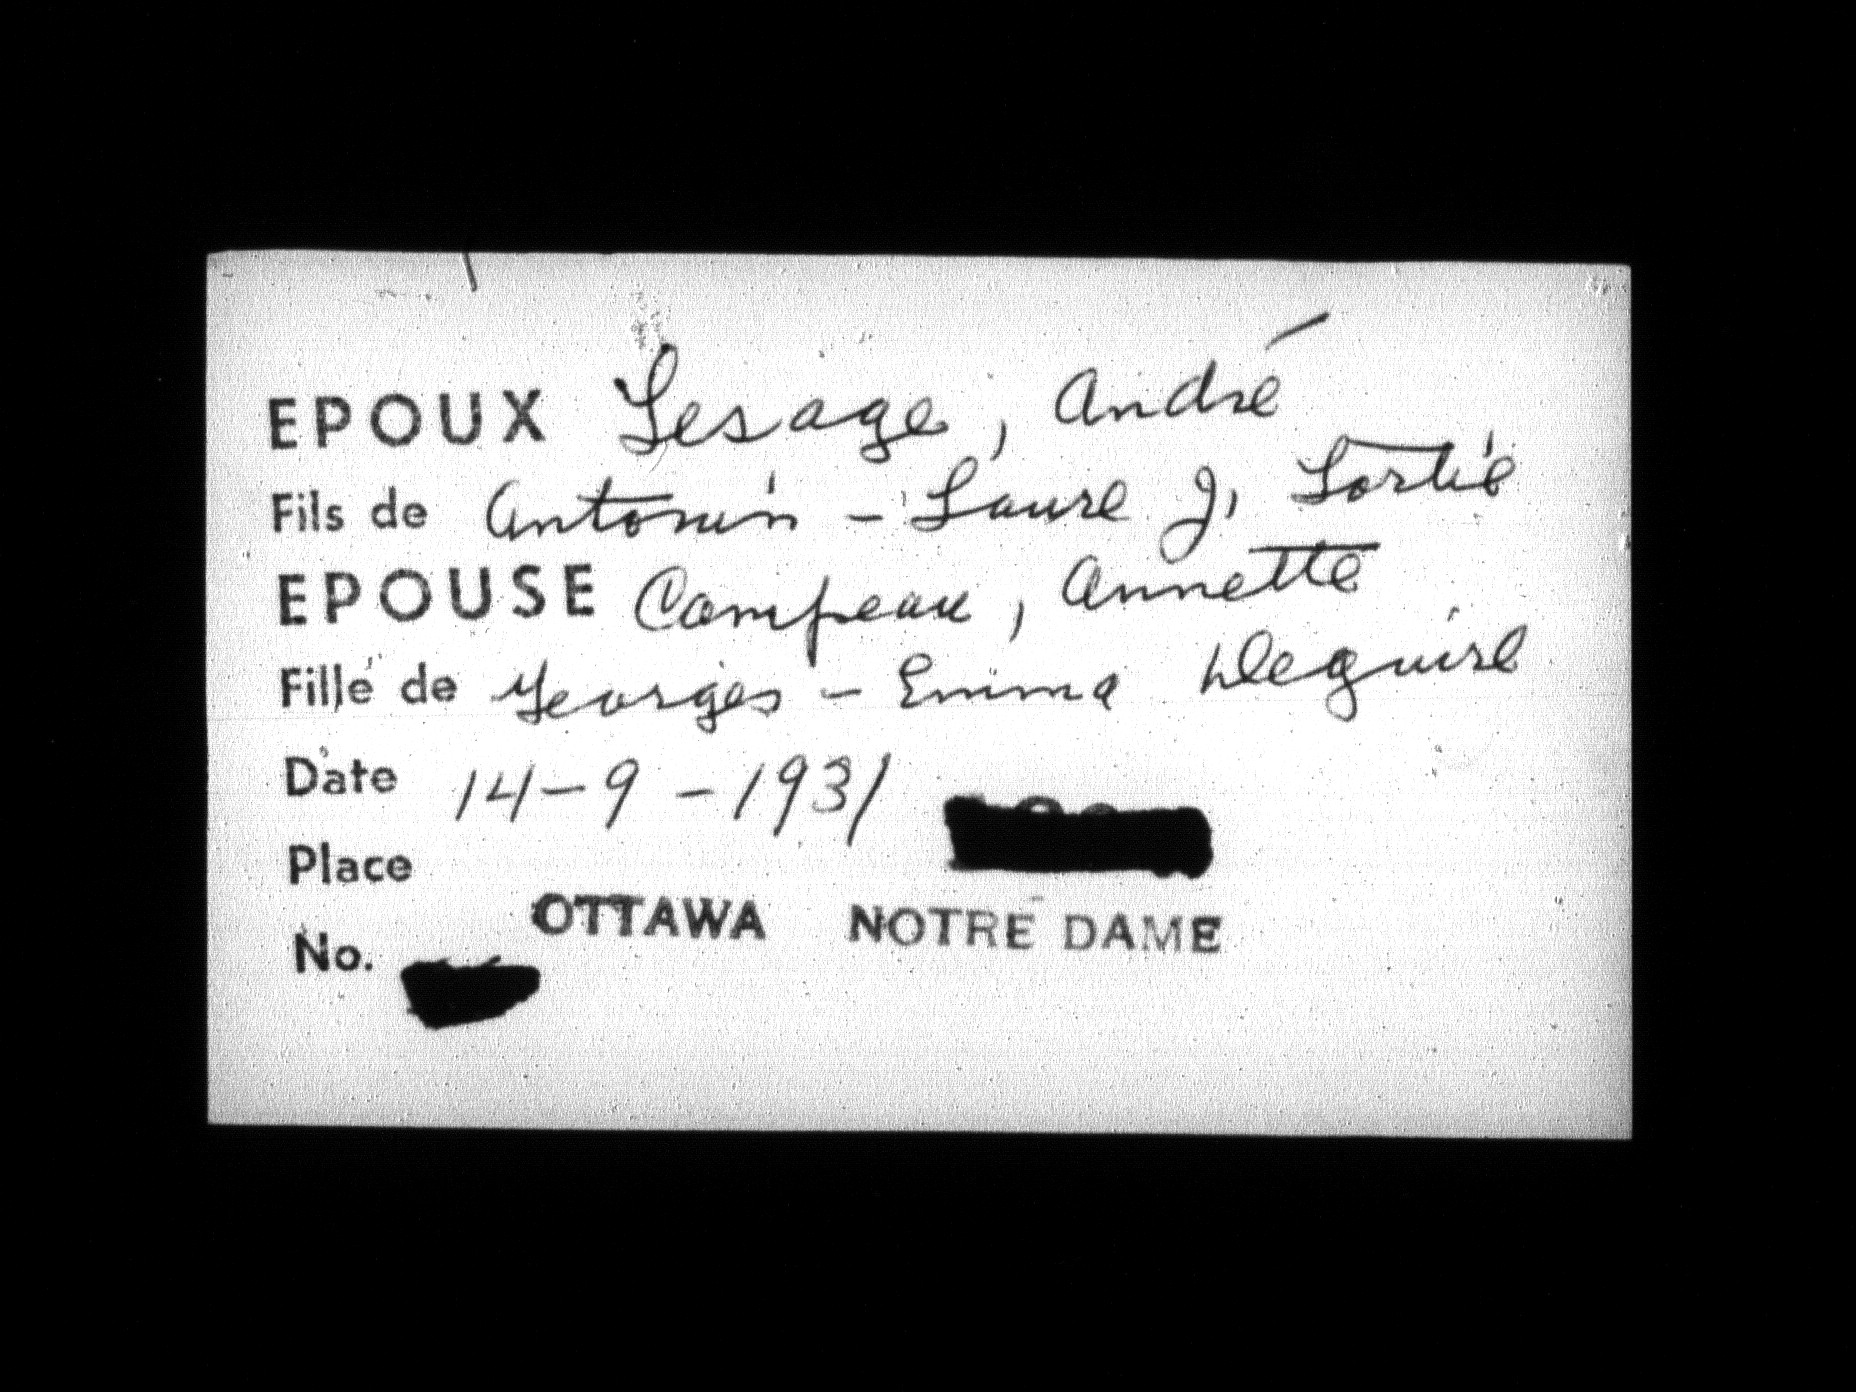 EPOUX Lesage, André
Fils de Antonin - Laure J. Lortie
EPOUSE Campeau, Annette
Fille de Georges - Emma Deguire
Date 14-9-1931
Place
OTTAWA NOTRE DAME
No.